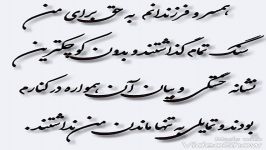 همسر و فرزندانم به حق برای من
سنگ تمام گذاشتند و بدون کوچکترین
نشانه خستگی و بیان آن همواره در کنارم
بودند و تمایلی به تنها ماندن من نداشتند.
VideoShow